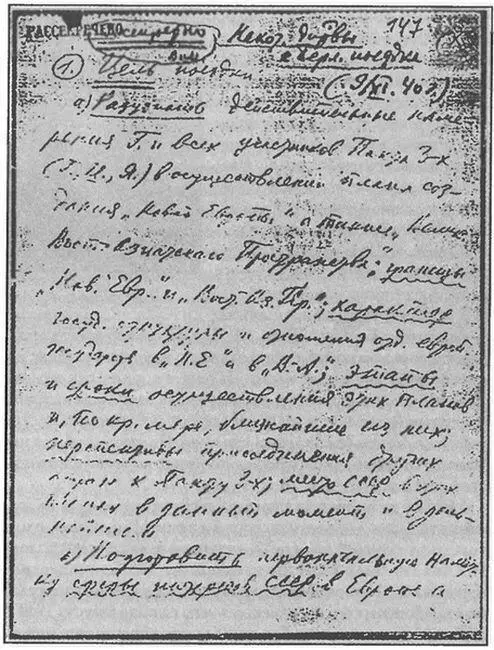 РАССЕКРЕЧЕНО
147
Некот. д
к Берл. поездке
(9/XI. 40 г.)
1. Цель поездки
а) Разузнать действительные наме-
рения Г. и всех участников Пакта 3-х
(Г., И., Я.) в осуществлении плана соз-
дания „Новой Европы“, а также „Велик.
Вост-Азиатского Пространства“; границы
„Нов. Евр.“ и „Вост. Аз. Пр.“; характер
госуд. структуры и отношения отд. европ.
государств в „Н.Е.“ и в „В.-А.“; этапы
и сроки осуществления этих планов
и, по кр. мере, ближайшие из них;
перспективы присоединения других
стран к Пакту 3-х; место СССР в этих
планах в данный момент и в даль-
нейшем.
б) Подготовить первоначальную намет-
ку сферы интересов СССР в Европе, а